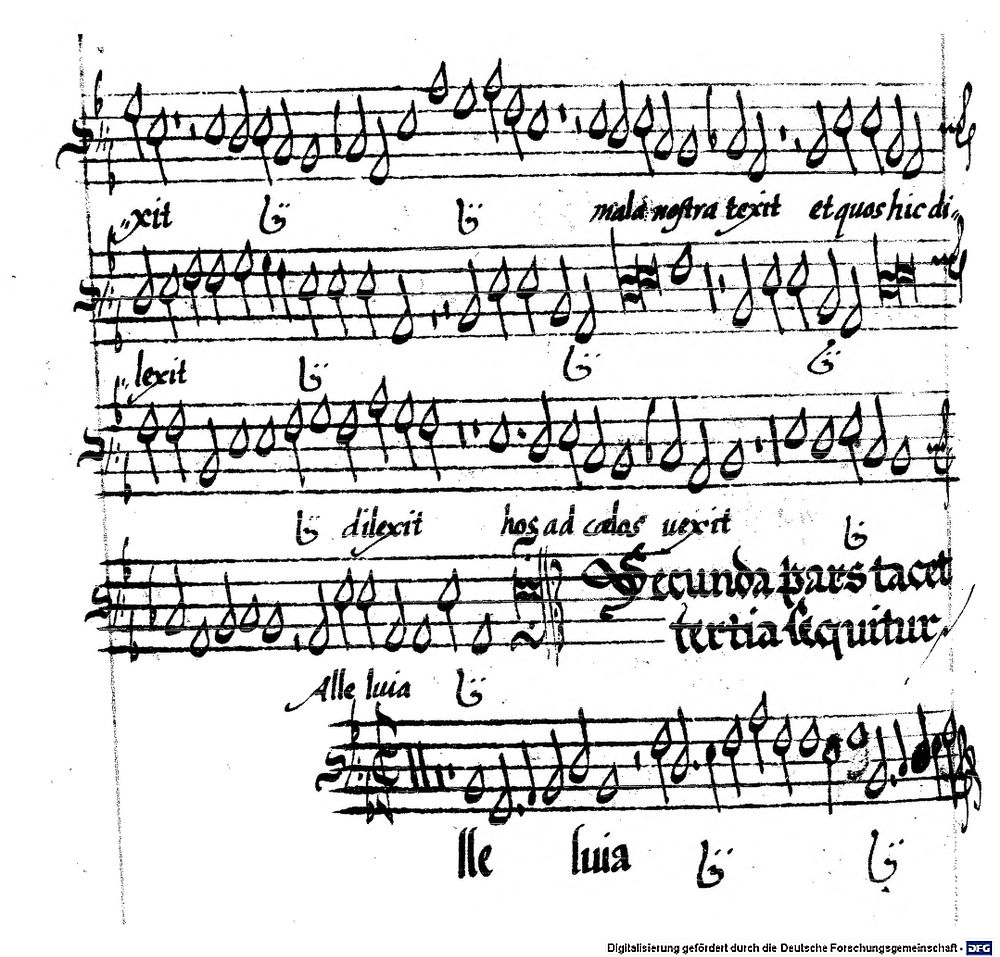 xit ij ij mala nostra texit et quos hic di
lexit ij ij ij
ij dilexit hos ad cælos uexit ij
Secunda pars tacet
tertia sequitur.
Alle luia ij
lle luia ij ij
Digitalisierung gefördert durch die Deutsche Forschungsgemeinschaft - DFG